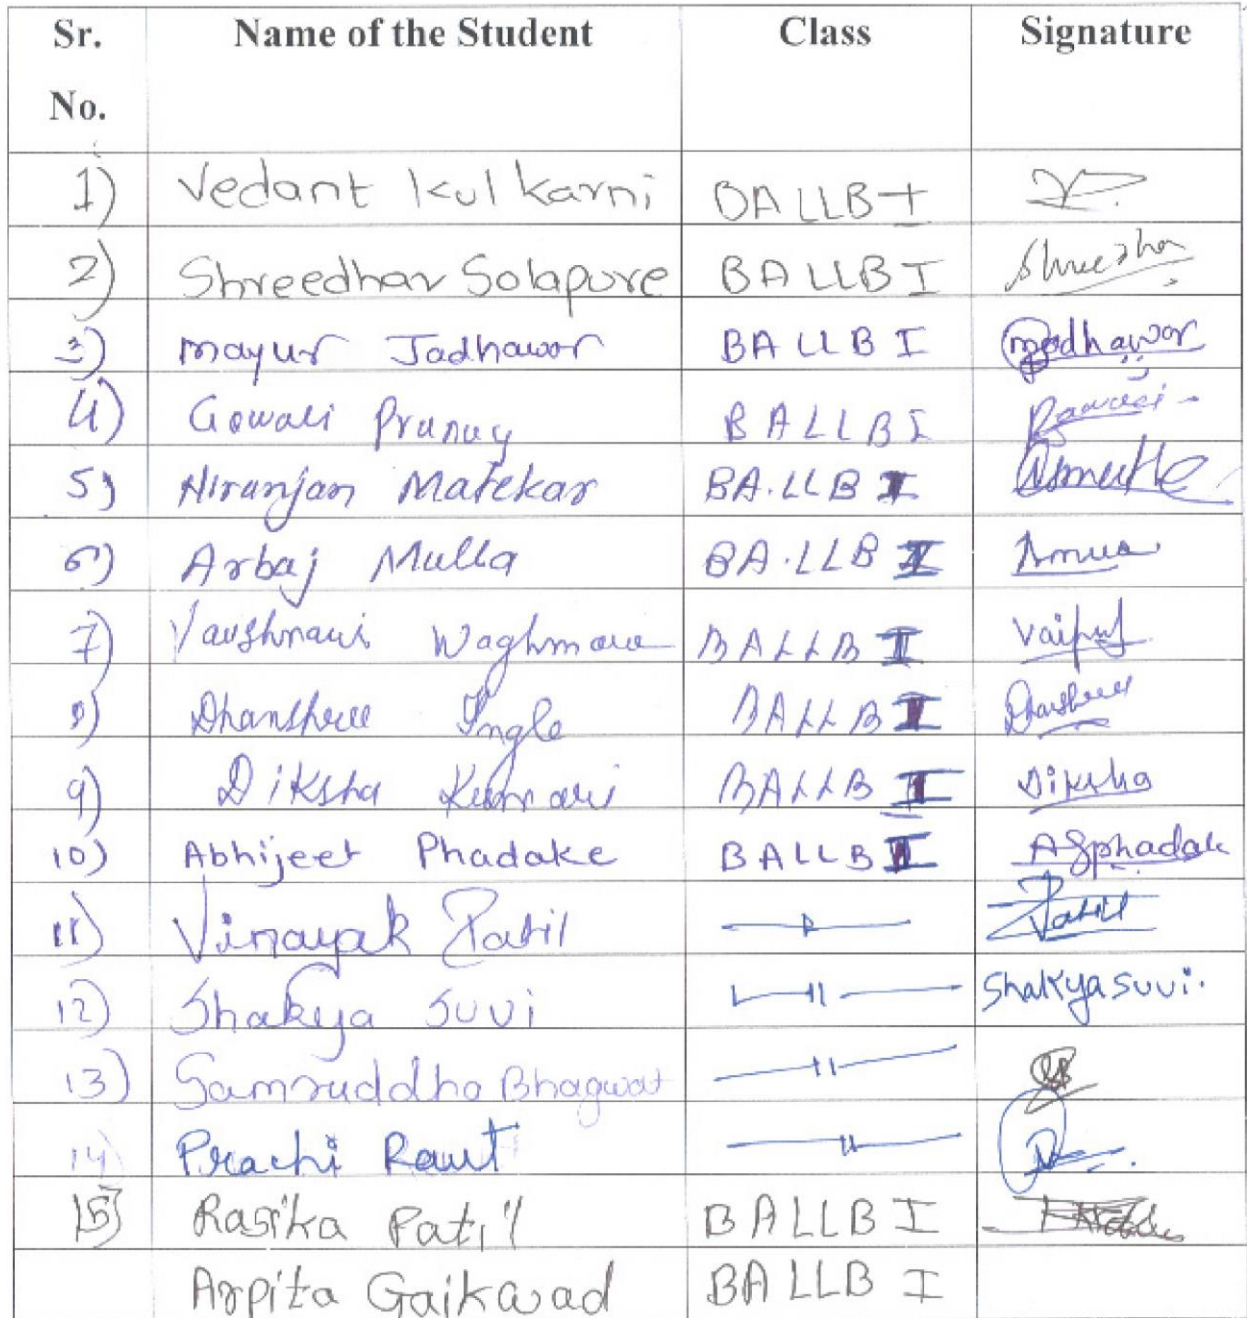 Sr. No. Name of the Student Class Signature
1) Vedant Kulkarni BA LLB I
2) Shreedhar Solapure BA LLB I Shreedhar
3) Mayur Jadhawar BA LLB I mjadhawar
4) Gowali Pranay BALLB I
5) Niranjan Matekar BA.LLB I
6) Arbaj Mulla BA.LLB I
7) Vaishnavi Waghmare BALLB I
8) Dhanshree Ingle BALLB I Dhanshree
9) Diksha Kumari BALLB I Diksha
10) Abhijeet Phadake BALLB I ASphadake
11) Vinayak Patil —"— Patil
12) Shakya Suvi —"— Shakya Suvi.
13) Samruddha Bhagwat —"—
14) Prachi Raut —"—
15) Rasika Patil BALLB I
Arpita Gaikawad BALLB I